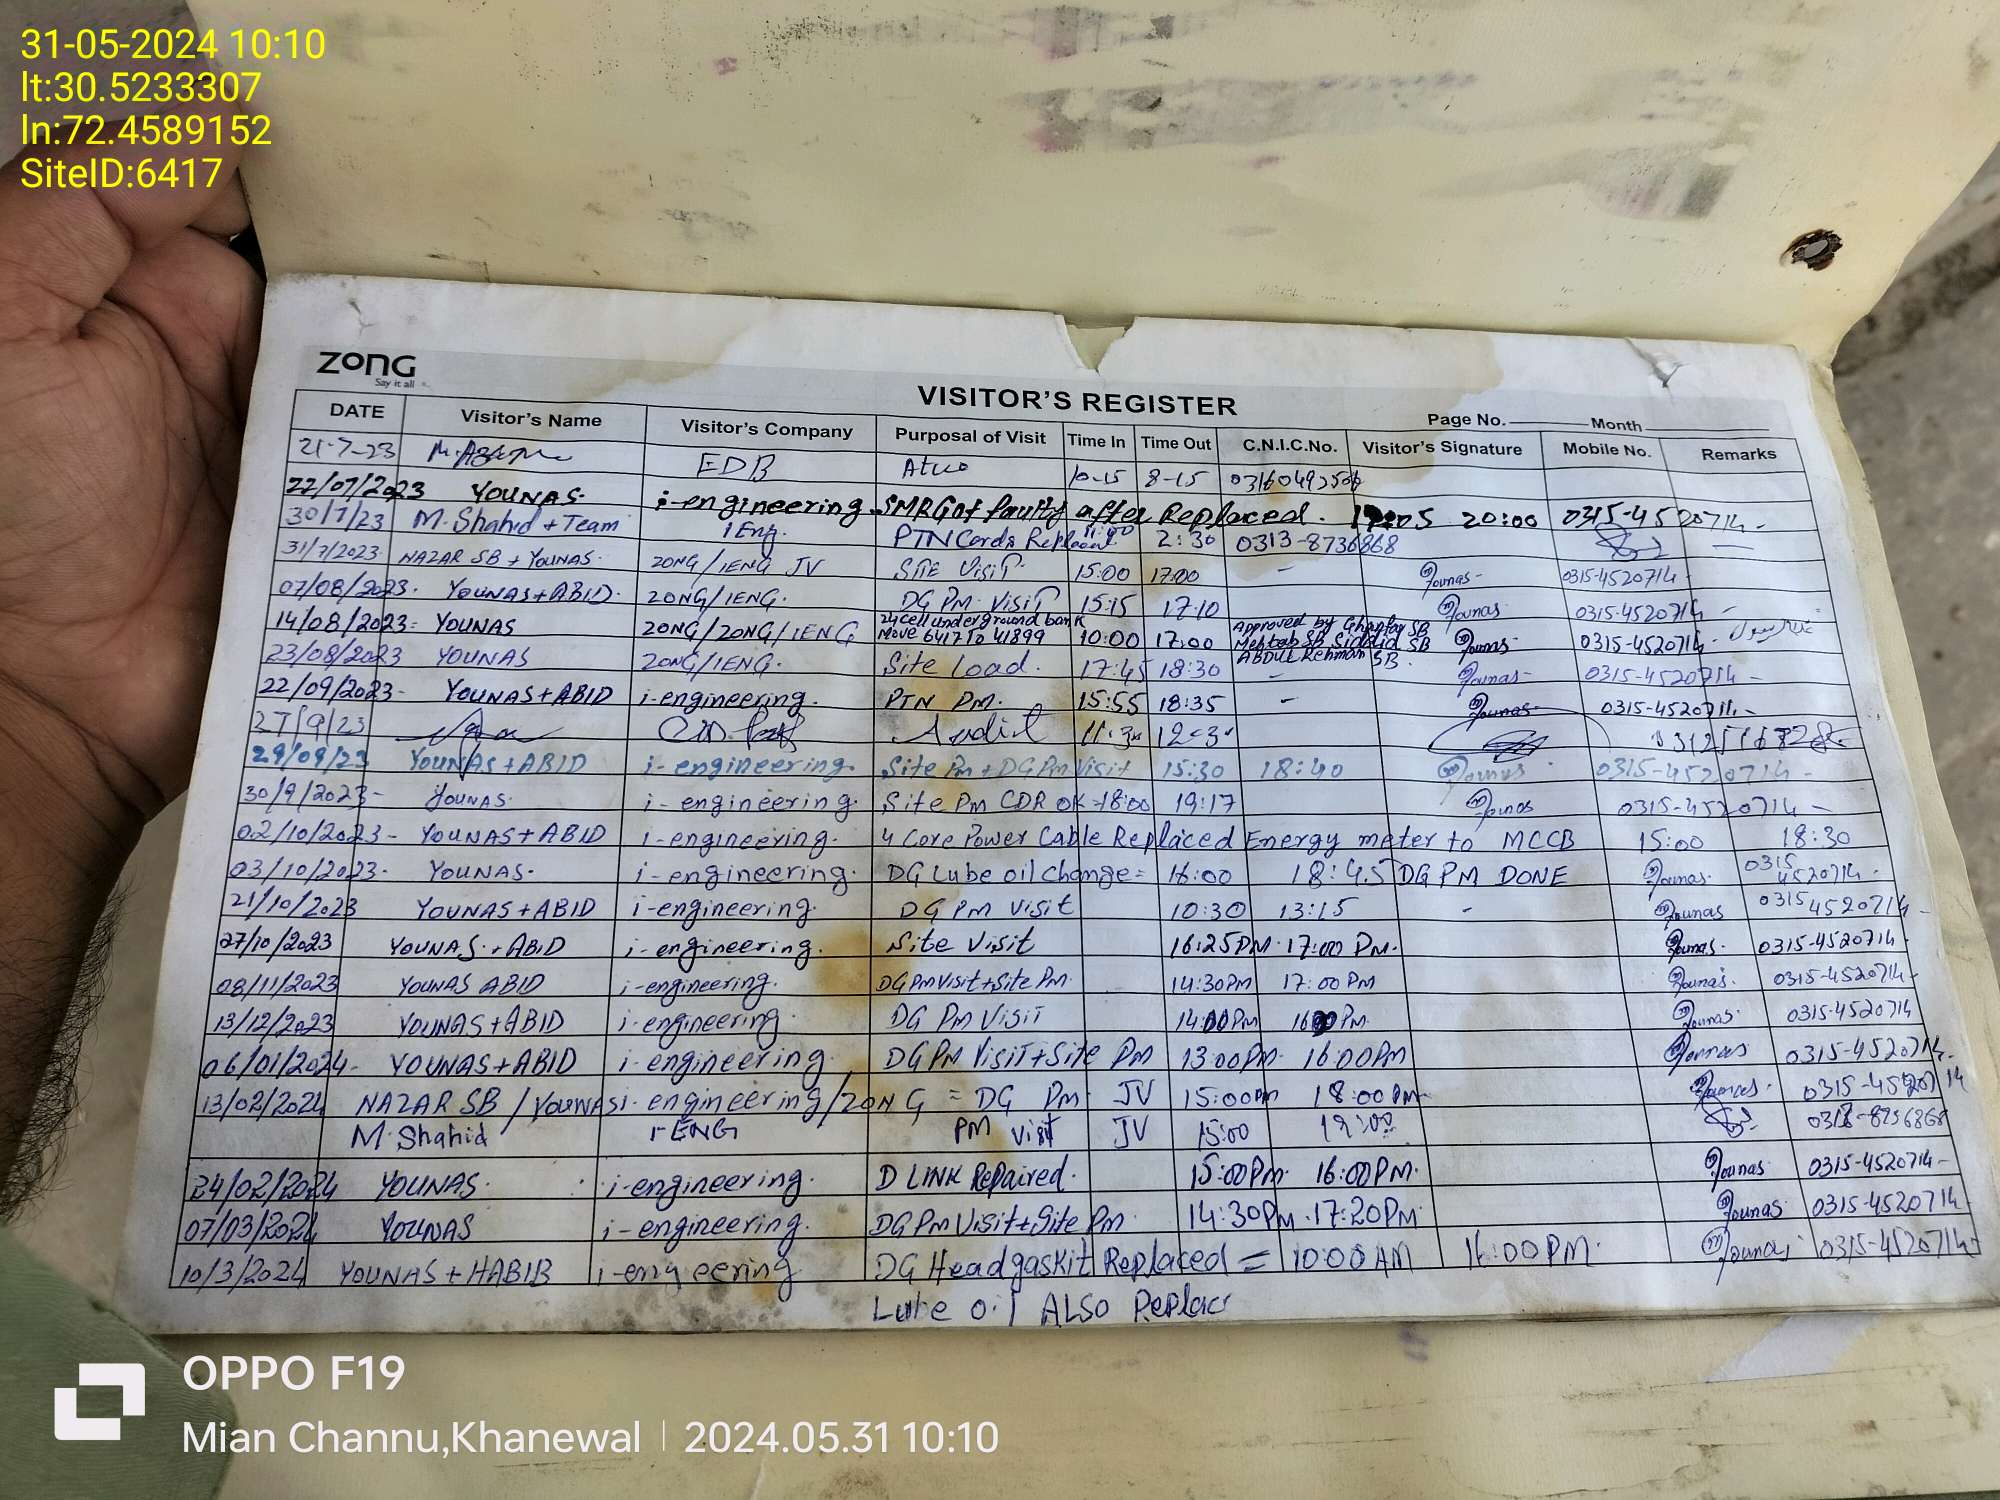 31-05-2024 10:10
lt:30.5233307
ln:72.4589152
SiteID:6417
ZONG
Say it all
VISITOR'S REGISTER
Page No. Month
DATE Visitor's Name Visitor's Company Purposal of Visit Time In Time Out C.N.I.C.No. Visitor's Signature Mobile No. Remarks
21-7-23 EDB 10-15 8-15
22/07/2023 YOUNAS. i-engineering. faulty after Replaced. 20:00 0315-4520714-
30/7/23 M. Shahid + Team iEng. PTN Cards 2:30 0313-8736868
31/7/2023 NAZAR SB + YOUNAS. ZONG/IENG JV SITE VISIT 15:00 17:00 - Younas- 0315-4520714-
07/08/2023. YOUNAS+ABID. ZONG/IENG. DG PM. VISIT 15:15 17:10 Younas 0315-4520714 -
14/08/2023= YOUNAS ZONG/ZONG/IENG 24cell underground bank Move 6417 To 41899 10:00 17:00 Approved by Ghaffar SB Mehtab SB SB ABDUL Rehman SB. Younas- 0315-4520714-
23/08/2023 YOUNAS ZONG/IENG. Site Load. 17:45 18:30 - Younas- 0315-4520714-
22/09/2023- YOUNAS+ABID i-engineering. PTN PM. 15:55 18:35 - Younas- 0315-4520714-
27/9/23 Audit
29/09/23 YOUNAS+ABID i-engineering. Site PM + DG PM Visit 15:30 18:40 Younas 0315-4520714-
30/9/2023- YOUNAS. i-engineering. Site PM CDR OK=18:00 19:17 Younas 0315-4520714-
02/10/2023- YOUNAS+ABID i-engineering. 4 Core Power Cable Replaced Energy meter to MCCB 15:00 18:30
03/10/2023. YOUNAS. i-engineering. DG Lube oil Change= 16:00 18:45 DG PM DONE Younas. 0315 4520714-
21/10/2023 YOUNAS+ABID i-engineering. DG PM Visit 10:30 13:15 - Younas 0315 4520714-
27/10/2023 YOUNAS.+ABID i-engineering. Site Visit 16:25PM. 17:00 PM. Younas. 0315-4520714.
08/11/2023 YOUNAS ABID i-engineering. DG PM Visit+Site PM. 14:30PM 17:00PM Younas. 0315-4520714-
13/12/2023 YOUNAS+ABID i-engineering. DG PM Visit 14:00PM Younas. 0315-4520714
06/01/2024- YOUNAS+ABID i-engineering. DG PM Visit+Site PM 13:00PM. 16:00PM Younas 0315-4520714.
13/02/2024 NAZAR SB / YOUNAS i-engineering/ZONG = DG PM. JV 15:00PM 18:00PM- Younas. 0315-4520714
M. Shahid I-ENG PM Visit JV 15:00
24/02/2024 YOUNAS. i-engineering. D LINK Repaired. 15:00PM. 16:00PM. Younas. 0315-4520714-
07/03/2024 YOUNAS i-engineering. DG PM Visit+Site PM. 14:30PM. 17:20PM. Younas. 0315-4520714
10/3/2024 YOUNAS + HABIB DG Head gaskit Replaced = 10:00 AM 16:00PM. Younas 0315-4520714-
Lube oil ALSO Replac
OPPO F19
Mian Channu,Khanewal | 2024.05.31 10:10